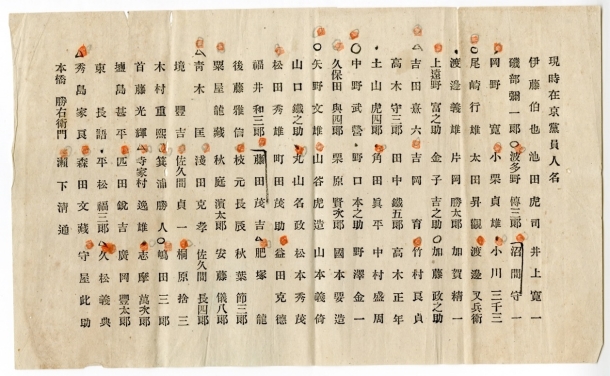 現時在京黨員人名
伊藤伯也 池田虎司 井上寛一
磯部彌一郎 波多野傳三郎 沼間守一
岡野寛 小柴貞雄 小川三千三
尾崎行雄 太田昇觀 渡邊叉兵衛
渡邊義雄 片岡勝太郎 加賀精一
上遠野富之助 金子吉之助 加藤政之助
吉田熹六 吉岡育 竹村良貞
高木守三郎 田中鐵五郎 高木正年
土山虎四郎 角田眞平 中村盛周
中野武營 野口本之助 野澤金一
久保田與四郎 栗原賢次郎 國本要造
矢野文雄 山谷虎造 山本義倚
山口鐵之助 丸山名政 松本秀茂
松田秀雄 町田茂助 益田克德
福井和三郎 藤田茂吉 肥塚龍
後藤雅信 枝元長辰 秋葉節三郎
粟屋龍藏 秋庭濱太郎 安藤儀八郎
青木匡 淺田克孝 佐久間長四郎
境豐吉 佐久間貞一 桐原捨三
木村重熙 箕浦勝人 嶋田三郎
首藤光輝 寺家村逸雄 志摩萬次郎
壇島甚平 匹田銳吉 廣岡豐太郎
東長語 平松福三郎 久松義典
秀島家良 森田文藏 守屋此助
本橋勝右衛門 瀨下清通